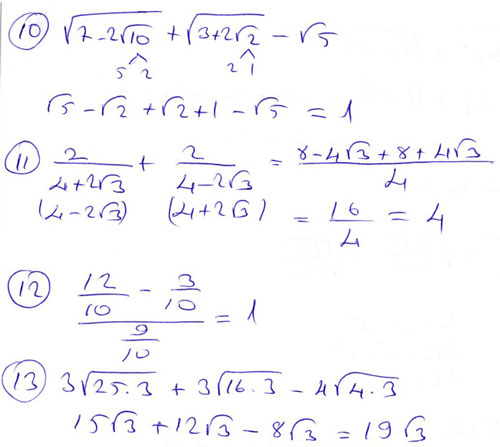 10 √(7-2√10) + √(3+2√2) - √5
5 2 2 1
√5 - √2 + √2 + 1 - √5 = 1
11 2/(4+2√3) + 2/(4-2√3) = (8-4√3+8+4√3)/4
(4-2√3) (4+2√3) = 16/4 = 4
12 (12/10 - 3/10)/(9/10) = 1
13 3√(25.3) + 3√(16.3) - 4√(4.3)
15√3 + 12√3 - 8√3 = 19√3